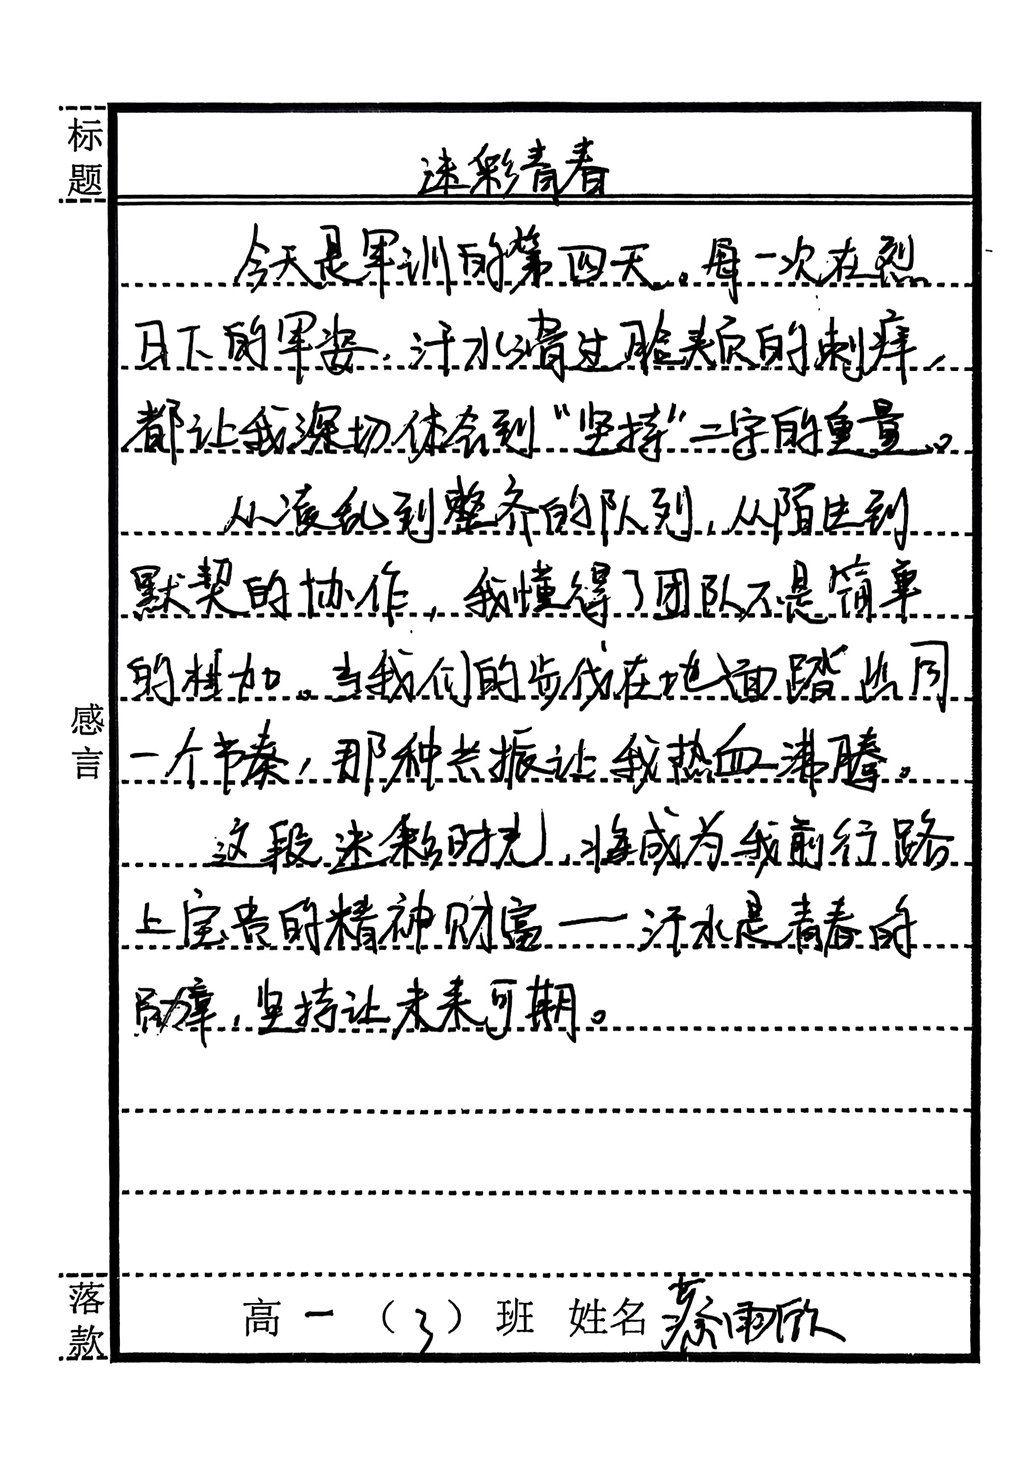 标题
迷彩青春
今天是军训的第四天。每一次在烈
日下的军姿，汗水滑过脸颊的刺痒，
都让我深切体会到“坚持”二字的重量。
从凌乱到整齐的队列，从陌生到
默契的协作，我懂得了团队不是简单
的堆加。当我们的步伐在地面踏出同
一个节奏，那种共振让我热血沸腾。
感言
这段迷彩时光，将成为我前行路
上宝贵的精神财富——汗水是青春的
勋章，坚持让未来可期。
落款
高一（3）班 姓名 蔡雨欣